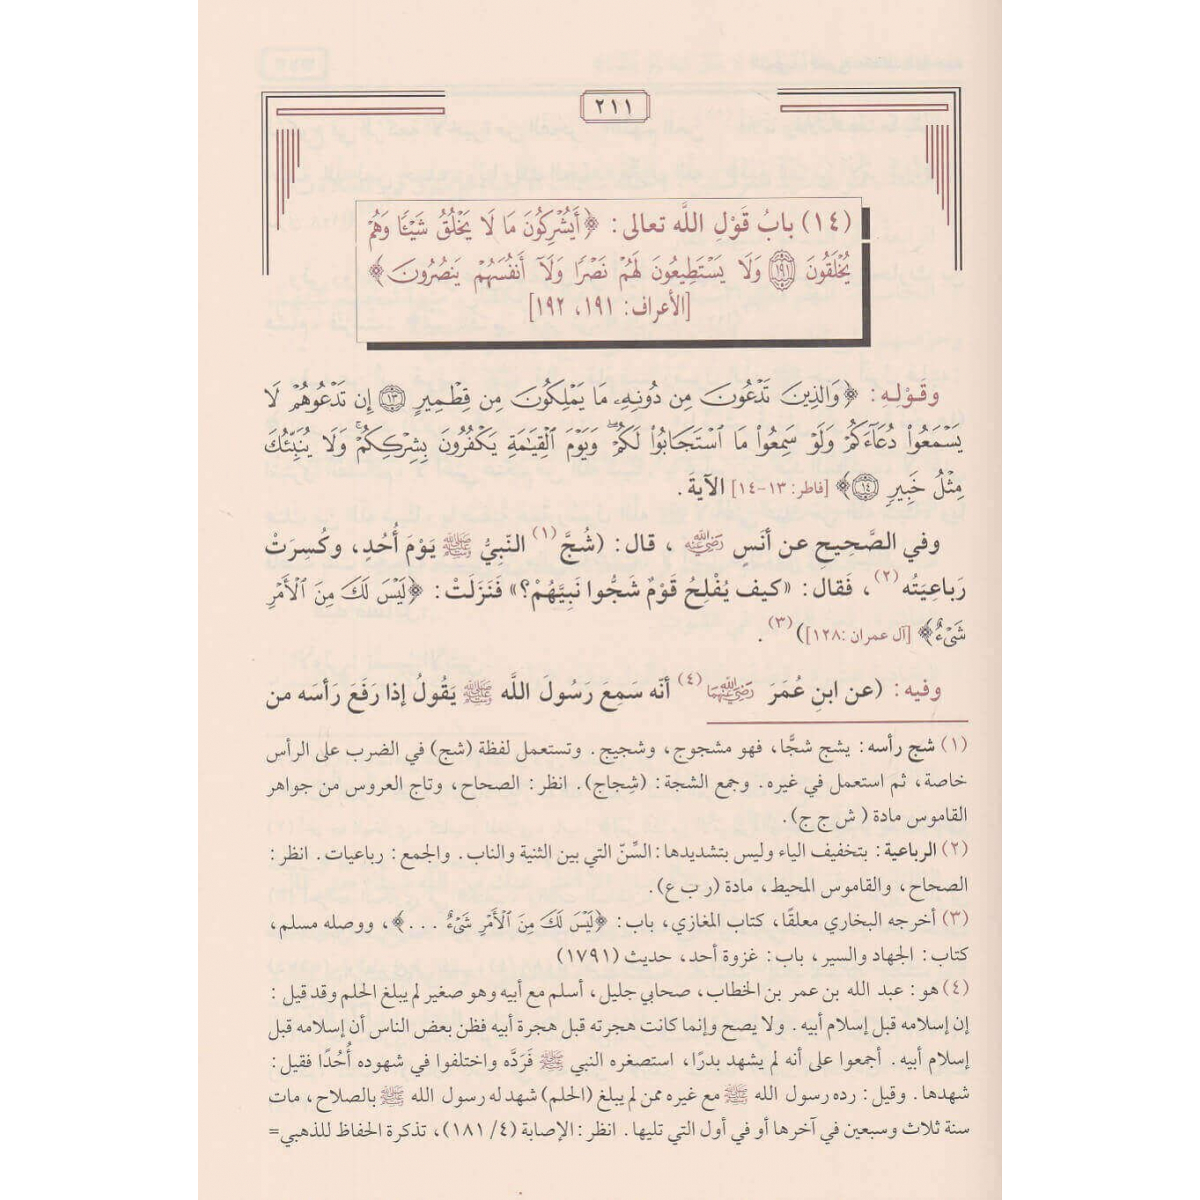 ٢١١
(١٤) بابُ قَوْلِ اللَّه تعالى: ﴿أَيُشْرِكُونَ مَا لَا يَخْلُقُ شَيْـًٔا وَهُمْ
يُخْلَقُونَ ﴿١٩١﴾ وَلَا يَسْتَطِيعُونَ لَهُمْ نَصْرًا وَلَآ أَنفُسَهُمْ يَنصُرُونَ﴾
[الأعراف: ١٩١، ١٩٢]
وقَـوْلِـهِ: ﴿وَالَّذِينَ تَدْعُونَ مِن دُونِهِۦ مَا يَمْلِكُونَ مِن قِطْمِيرٍ ﴿١٣﴾ إِن تَدْعُوهُمْ لَا
يَسْمَعُوا۟ دُعَآءَكُمْ وَلَوْ سَمِعُوا۟ مَا ٱسْتَجَابُوا۟ لَكُمْ ۖ وَيَوْمَ ٱلْقِيَٰمَةِ يَكْفُرُونَ بِشِرْكِكُمْ ۚ وَلَا يُنَبِّئُكَ
مِثْلُ خَبِيرٍ ﴿١٤﴾﴾ [فاطر: ١٣-١٤] الآيةَ.
وفي الصَّحِيحِ عن أنَسٍ رَضِيَ اللَّهُ عَنْهُ، قال: (شُجَّ(١) النّبيُّ ﷺ يَوْمَ أُحُدٍ، وكُسِرَتْ
رَباعِيَتُه(٢)، فَقال: «كيف يُفْلِحُ قَوْمٌ شَجُّوا نَبِيَّهُمْ؟» فَنَزَلَتْ: ﴿لَيْسَ لَكَ مِنَ ٱلْأَمْرِ
شَىْءٌ﴾ [آل عمران :١٢٨])(٣).
وفيه: (عن ابنِ عُمَرَ رَضِيَ اللَّهُ عَنْهُمَا(٤) أنّه سَمِعَ رَسُولَ اللَّه ﷺ يَقُولُ إذا رَفَعَ رَأسَه من
(١) شج رأسه: يشج شجًّا، فهو مشجوج، وشجيج. وتستعمل لفظة (شج) في الضرب على الرأس
خاصة، ثمّ استعمل في غيره. وجمع الشجة: (شِجاج). انظر: الصحاح، وتاج العروس من جواهر
القاموس مادة ( ش ج ج).
(٢) الرباعية: بتخفيف الياء وليس بتشديدها: السِّنّ التي بين الثنية والناب. والجمع: رباعيات. انظر:
الصحاح، والقاموس المحيط، مادة (ر ب ع).
(٣) أخرجه البخاري معلقًا، كتاب المغازي، باب: ﴿لَيْسَ لَكَ مِنَ ٱلْأَمْرِ شَىْءٌ ...﴾، ووصله مسلم،
كتاب: الجهاد والسير، باب: غزوة أحد، حديث (١٧٩١)
(٤) هو: عبد الله بن عمر بن الخطاب، صحابي جليل، أسلم مع أبيه وهو صغير لم يبلغ الحلم وقد قيل:
إن إسلامه قبل إسلام أبيه. ولا يصح وإنما كانت هجرته قبل هجرة أبيه فظن بعض الناس أن إسلامه قبل
إسلام أبيه. أجمعوا على أنه لم يشهد بدرًا، استصغره النبي ﷺ فَرَدَّه واختلفوا في شهوده أُحُدًا فقيل:
شهدها. وقيل: رده رسول الله ﷺ مع غيره ممن لم يبلغ (الحلم) شهد له رسول الله ﷺ بالصلاح، مات
سنة ثلاث وسبعين في آخرها أو في أول التي تليها. انظر: الإصابة (٤/ ١٨١)، تذكرة الحفاظ للذهبي=